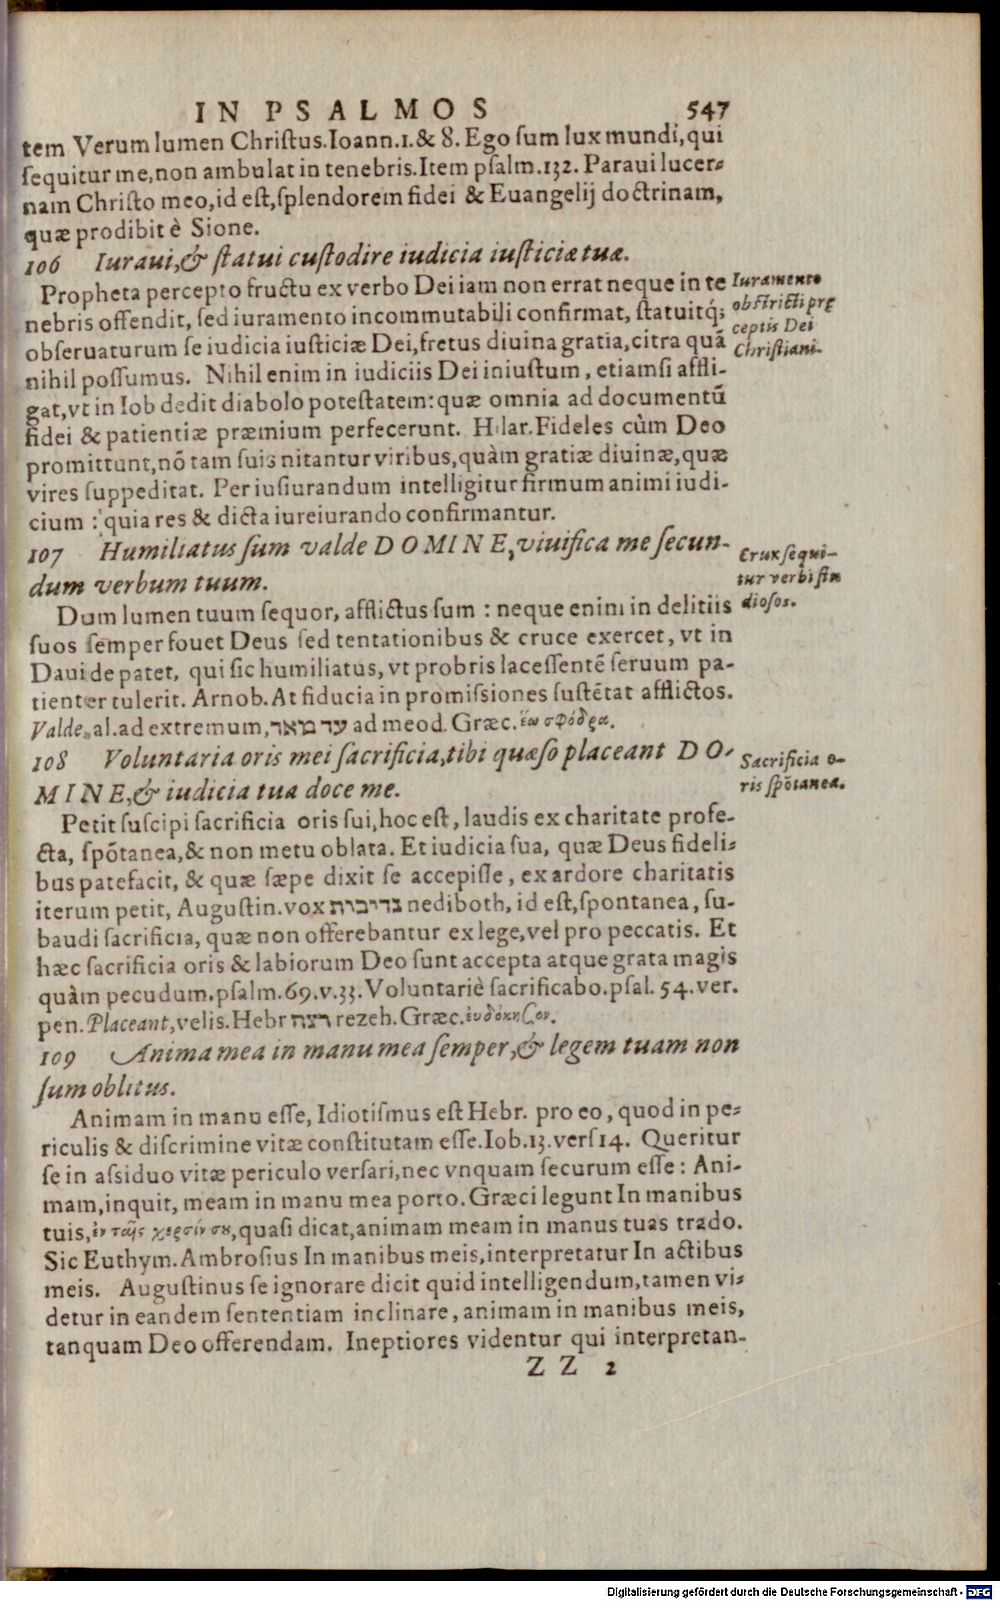 IN PSALMOS 547
tem Verum lumen Chriſtus. Ioann. 1. & 8. Ego ſum lux mundi, qui
ſequitur me, non ambulat in tenebris. Item pſalm. 132. Paraui lucer-
nam Chriſto meo, id eſt, ſplendorem fidei & Euangelij doctrinam,
quæ prodibit è Sione.
106 Iuraui, & ſtatui cuſtodire iudicia iuſticiæ tuæ.
Propheta percepto fructu ex verbo Dei iam non errat neque in te
nebris offendit, ſed iuramento incommutabili confirmat, ſtatuitq́;
obſeruaturum ſe iudicia iuſticiæ Dei, fretus diuina gratia, citra quã
nihil poſſumus. Nihil enim in iudiciis Dei iniuſtum, etiamſi affli-
gat, vt in Iob dedit diabolo poteſtatem: quæ omnia ad documentũ
fidei & patientiæ præmium perfecerunt. Hilar. Fideles cùm Deo
promittunt, nõ tam ſuis nitantur viribus, quàm gratiæ diuinæ, quæ
vires ſuppeditat. Per iuſiurandum intelligitur firmum animi iudi-
cium : quia res & dicta iureiurando confirmantur.
Iuramento
obſtricti prę
ceptis Dei
Chriſtiani.
107 Humiliatus ſum valde DOMINE, viuifica me ſecun-
dum verbum tuum.
Dum lumen tuum ſequor, afflictus ſum : neque enim in delitiis
ſuos ſemper fouet Deus ſed tentationibus & cruce exercet, vt in
Dauide patet, qui ſic humiliatus, vt probris laceſſentẽ ſeruum pa-
tienter tulerit. Arnob. At fiducia in promiſsiones ſuſtẽtat afflictos.
Valde, al. ad extremum, עד מאד ad meod. Græc. ἕω σφόδρα.
Crux ſequi-
tur verbi ſtu
dioſos.
108 Voluntaria oris mei ſacrificia, tibi quæſo placeant DO-
MINE, & iudicia tua doce me.
Petit ſuſcipi ſacrificia oris ſui, hoc eſt, laudis ex charitate profe-
cta, ſpõtanea, & non metu oblata. Et iudicia ſua, quæ Deus fideli-
bus patefacit, & quæ ſæpe dixit ſe accepiſſe, ex ardore charitatis
iterum petit, Auguſtin. vox נדיבות nediboth, id eſt, ſpontanea, ſu-
baudi ſacrificia, quæ non offerebantur ex lege, vel pro peccatis. Et
hæc ſacrificia oris & labiorum Deo ſunt accepta atque grata magis
quàm pecudum. pſalm. 69. v. 33. Voluntariè ſacrificabo. pſal. 54. ver.
pen. Placeant, velis. Hebr רצה rezeh. Græc. ἐυδόκησον.
Sacrificia o-
ris ſpõtanea.
109 Anima mea in manu mea ſemper, & legem tuam non
ſum oblitus.
Animam in manu eſſe, Idiotiſmus eſt Hebr. pro eo, quod in pe-
riculis & diſcrimine vitæ conſtitutam eſſe. Iob. 13. verſ 14. Queritur
ſe in aſsiduo vitæ periculo verſari, nec vnquam ſecurum eſſe : Ani-
mam, inquit, meam in manu mea porto. Græci legunt In manibus
tuis, ἐν ταῖς χερσίν σου, quaſi dicat, animam meam in manus tuas trado.
Sic Euthym. Ambroſius In manibus meis, interpretatur In actibus
meis. Auguſtinus ſe ignorare dicit quid intelligendum, tamen vi-
detur in eandem ſententiam inclinare, animam in manibus meis,
tanquam Deo offerendam. Ineptiores videntur qui interpretan-
ZZ 2
Digitalisierung gefördert durch die Deutsche Forschungsgemeinschaft - DFG